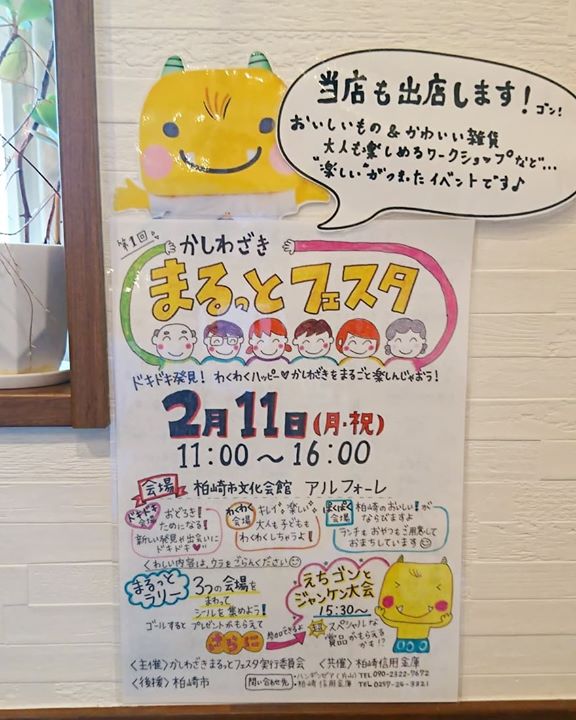 当店も出店します! ゴン!
おいしいもの & かわいい雑貨
大人も楽しめるワークショップなど…
"楽しい"がつまったイベントです♪
第1回
かしわざき
まるっとフェスタ
ドキドキ発見! わくわくハッピー♥かしわざきをまるごと楽しんじゃおう!
2月11日(月・祝)
11:00〜16:00
会場 柏崎市文化会館 アルフォーレ
ドキドキ会場
おどろき!
ためになる!
新しい発見や出会いに
ドキドキ♥
わくわく会場
キレイ。楽しい。
大人も子どもも
わくわくしちゃうよ!
ぱくぱく会場
柏崎のおいしい!が
ならびますよ
ランチもおやつもご用意して
おまちしています☺
くわしい内容は、ウラをごらんください☺
まるっと
ラリー
3つの会場を
まわって
シールを集めよう!
ゴールするとプレゼントがもらえて
さらに
えちゴンと
ジャンケン大会
15:30〜
スペシャルな
賞品がもらえる
かも!?
<主催>かしわざきまるっとフェスタ実行委員会 <共催>柏崎信用金庫
<後援>柏崎市
問い合わせ先
TEL 090-2322-7672
・柏崎信用金庫 TEL 0257-24-3321